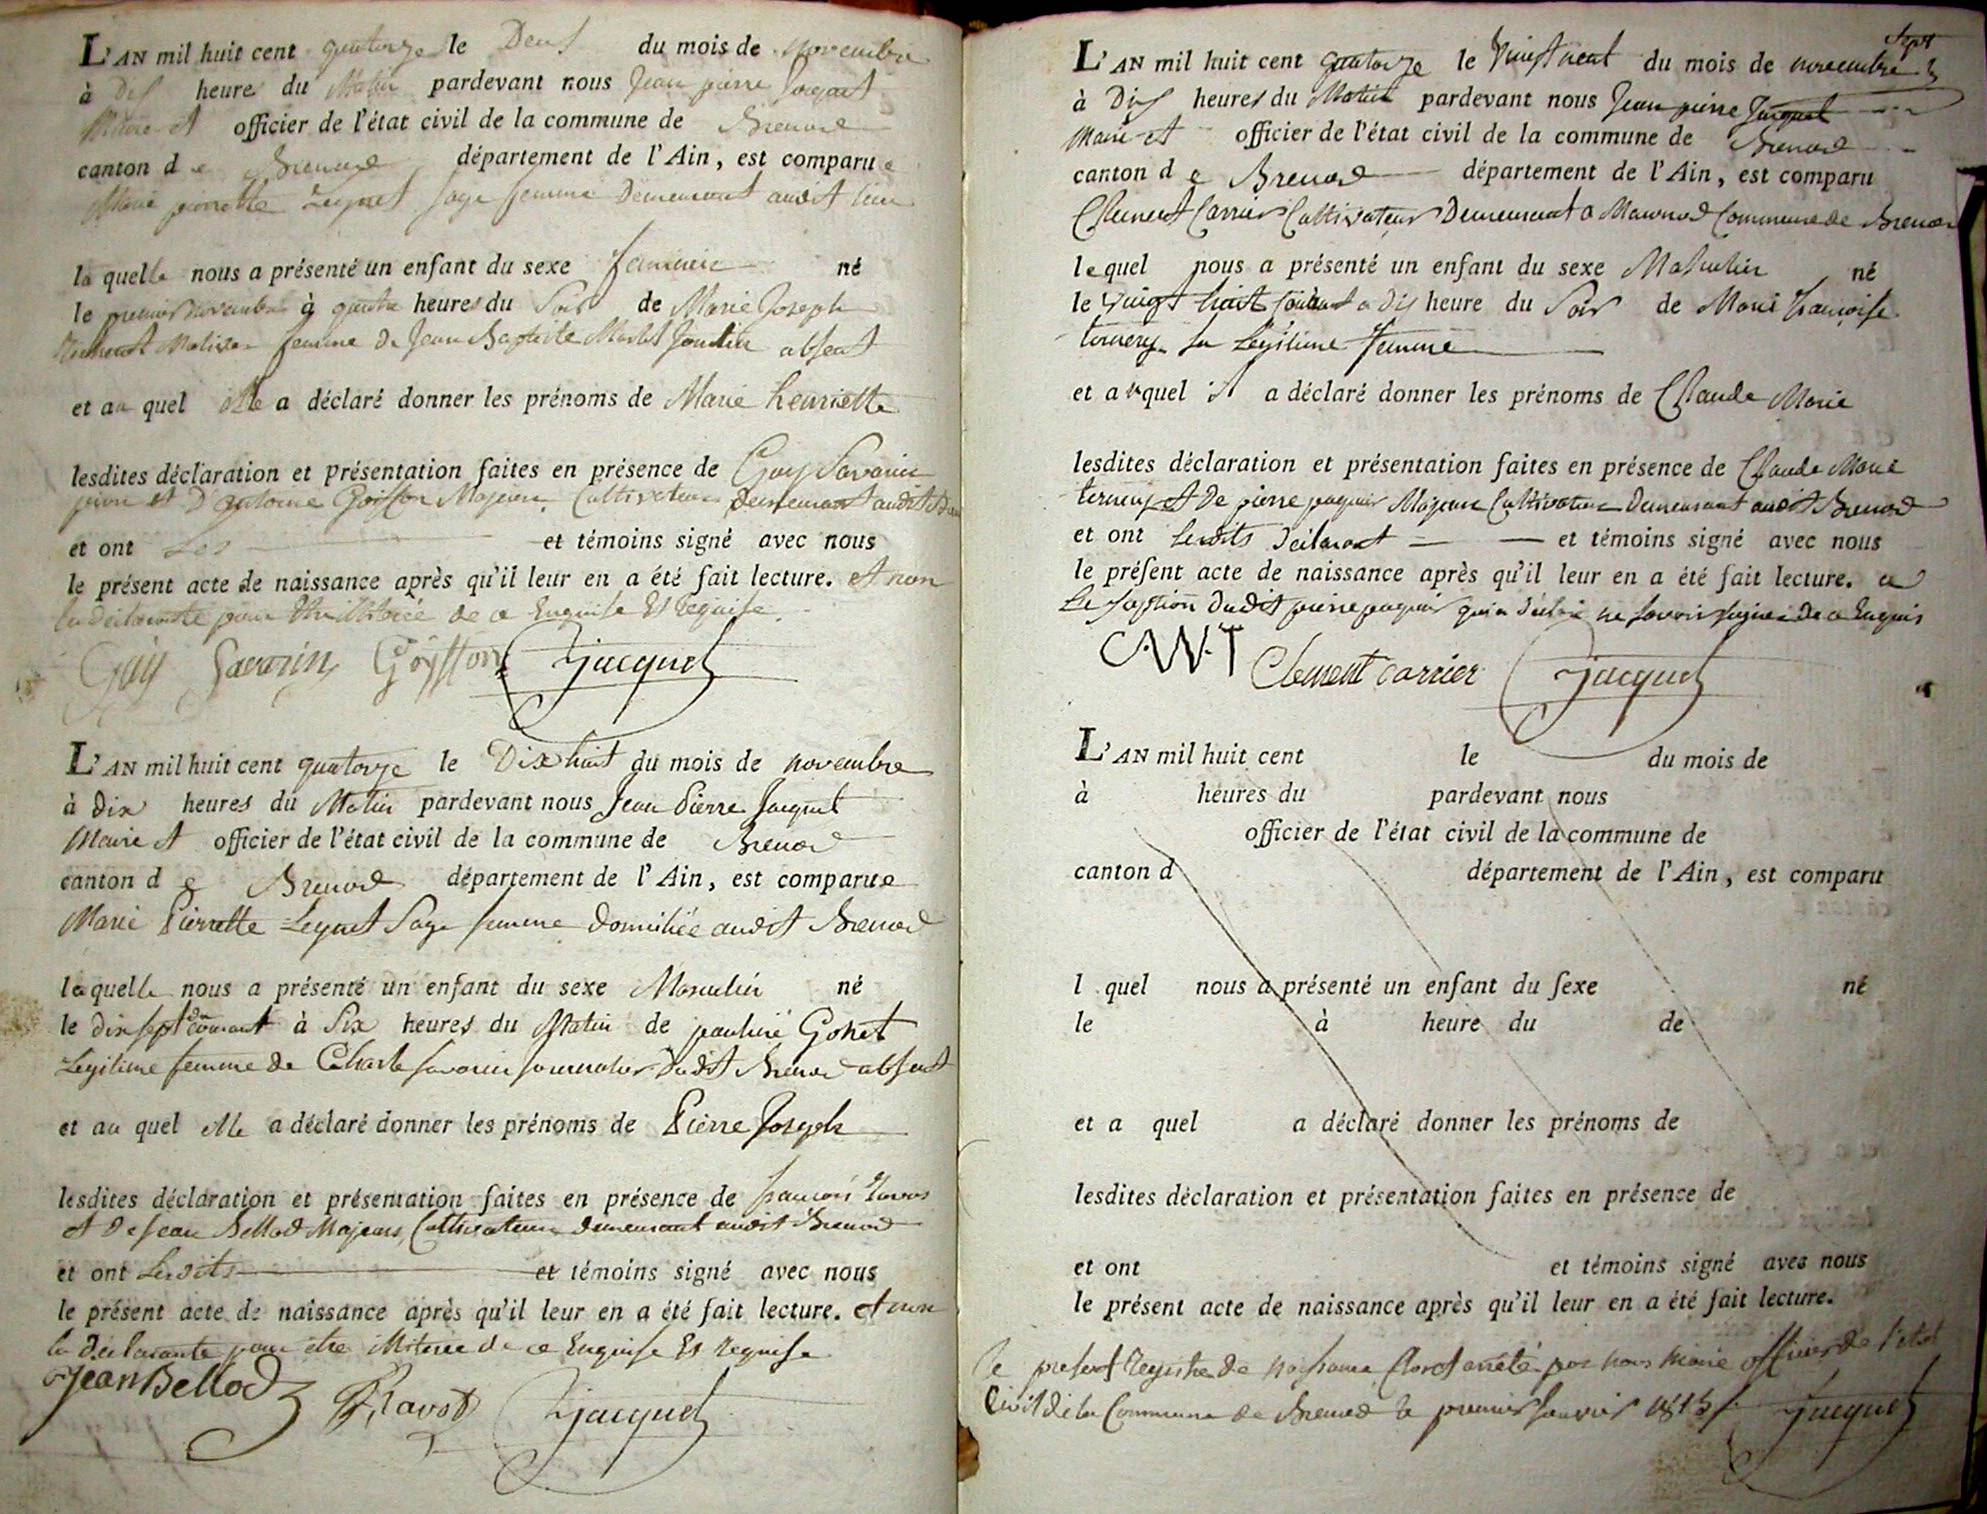 L'AN mil huit cent quatorze le Deux du mois de novembre
à Dix heures du Matin pardevant nous Jean pierre Jacquet
Maire et officier de l'état civil de la commune de Brenod
canton de Brenod département de l'Ain, est comparue
Marie pierrette Leynet sage femme Demeurant audit lieu
laquelle nous a présenté un enfant du sexe feminin né
le premier novembre à quatre heures du Soir de Marie Joseph
femme de Jean Baptiste absent
et au quel elle a déclaré donner les prénoms de Marie henriette
lesdites déclaration et présentation faites en présence de Guy Savarin
pion et D'antoine Goiffon Majeurs, Cultivateurs Demeurant audit
et ont Les et témoins signé avec nous
le présent acte de naissance après qu'il leur en a été fait lecture. et non
la declarante pour Etre illiterée de ce Enquise Et requise.
Guy Savarin Goyffon Jacquet
L'AN mil huit cent quatorze le Dix huit du mois de novembre
à dix heures du Matin pardevant nous Jean Pierre Jacquet
Maire et officier de l'état civil de la commune de Brenod
canton de Brenod département de l'Ain, est comparue
Marie Pierrette Leynet Sage femme domiciliée audit Brenod
laquelle nous a présenté un enfant du sexe Masculin né
le dix sept du courant à Six heures du Matin de pauline Gonet
Legitime femme de Charle savarin journalier dudit Brenod absent
et au quel elle a déclaré donner les prénoms de Pierre Joseph
lesdites déclaration et présentation faites en présence de francois Ravos
et De jean Bellod Majeurs, Cultivateurs demeurant audit Brenod
et ont Lesdits et témoins signé avec nous
le présent acte de naissance après qu'il leur en a été fait lecture. et non
la Declarante pour etre illiterée de ce Enquise Et requise
Jean Bellod Ravos Jacquet
Sept
L'AN mil huit cent quatorze le Vingt neuf du mois de novembre
à Dix heures du Matin pardevant nous Jean pierre Jacquet
Maire et officier de l'état civil de la commune de Brenod
canton de Brenod département de l'Ain, est comparu
Clement Carrier Cultivateur Demeurant a Macond Commune de Brenod
lequel nous a présenté un enfant du sexe Masculin né
le vingt huit courant a dix heure du Soir de Marie françoise
ternery sa Legitime femme
et auquel il a déclaré donner les prénoms de Claude Marie
lesdites déclaration et présentation faites en présence de Claude Marie
ternery et De pierre Majeurs Cultivateurs Demeurant audit Brenod
et ont Lesdits Déclarant et témoins signé avec nous
le présent acte de naissance après qu'il leur en a été fait lecture. a
Dudit pierre qui a déclaré ne savoir signer De ce Enquis
C.M.T Clement carrier Jacquet
L'AN mil huit cent le du mois de
à heures du pardevant nous
officier de l'état civil de la commune de
canton d département de l'Ain, est comparu
l quel nous a présenté un enfant du sexe né
le à heure du de
et a quel a déclaré donner les prénoms de
lesdites déclaration et présentation faites en présence de
et ont et témoins signé avec nous
le présent acte de naissance après qu'il leur en a été fait lecture.
le present Registre de naissance Clos et arrêté par nous Maire officier de l'etat
Civil de la Commune de Brenod le premier Janvier 1815 Jacquet